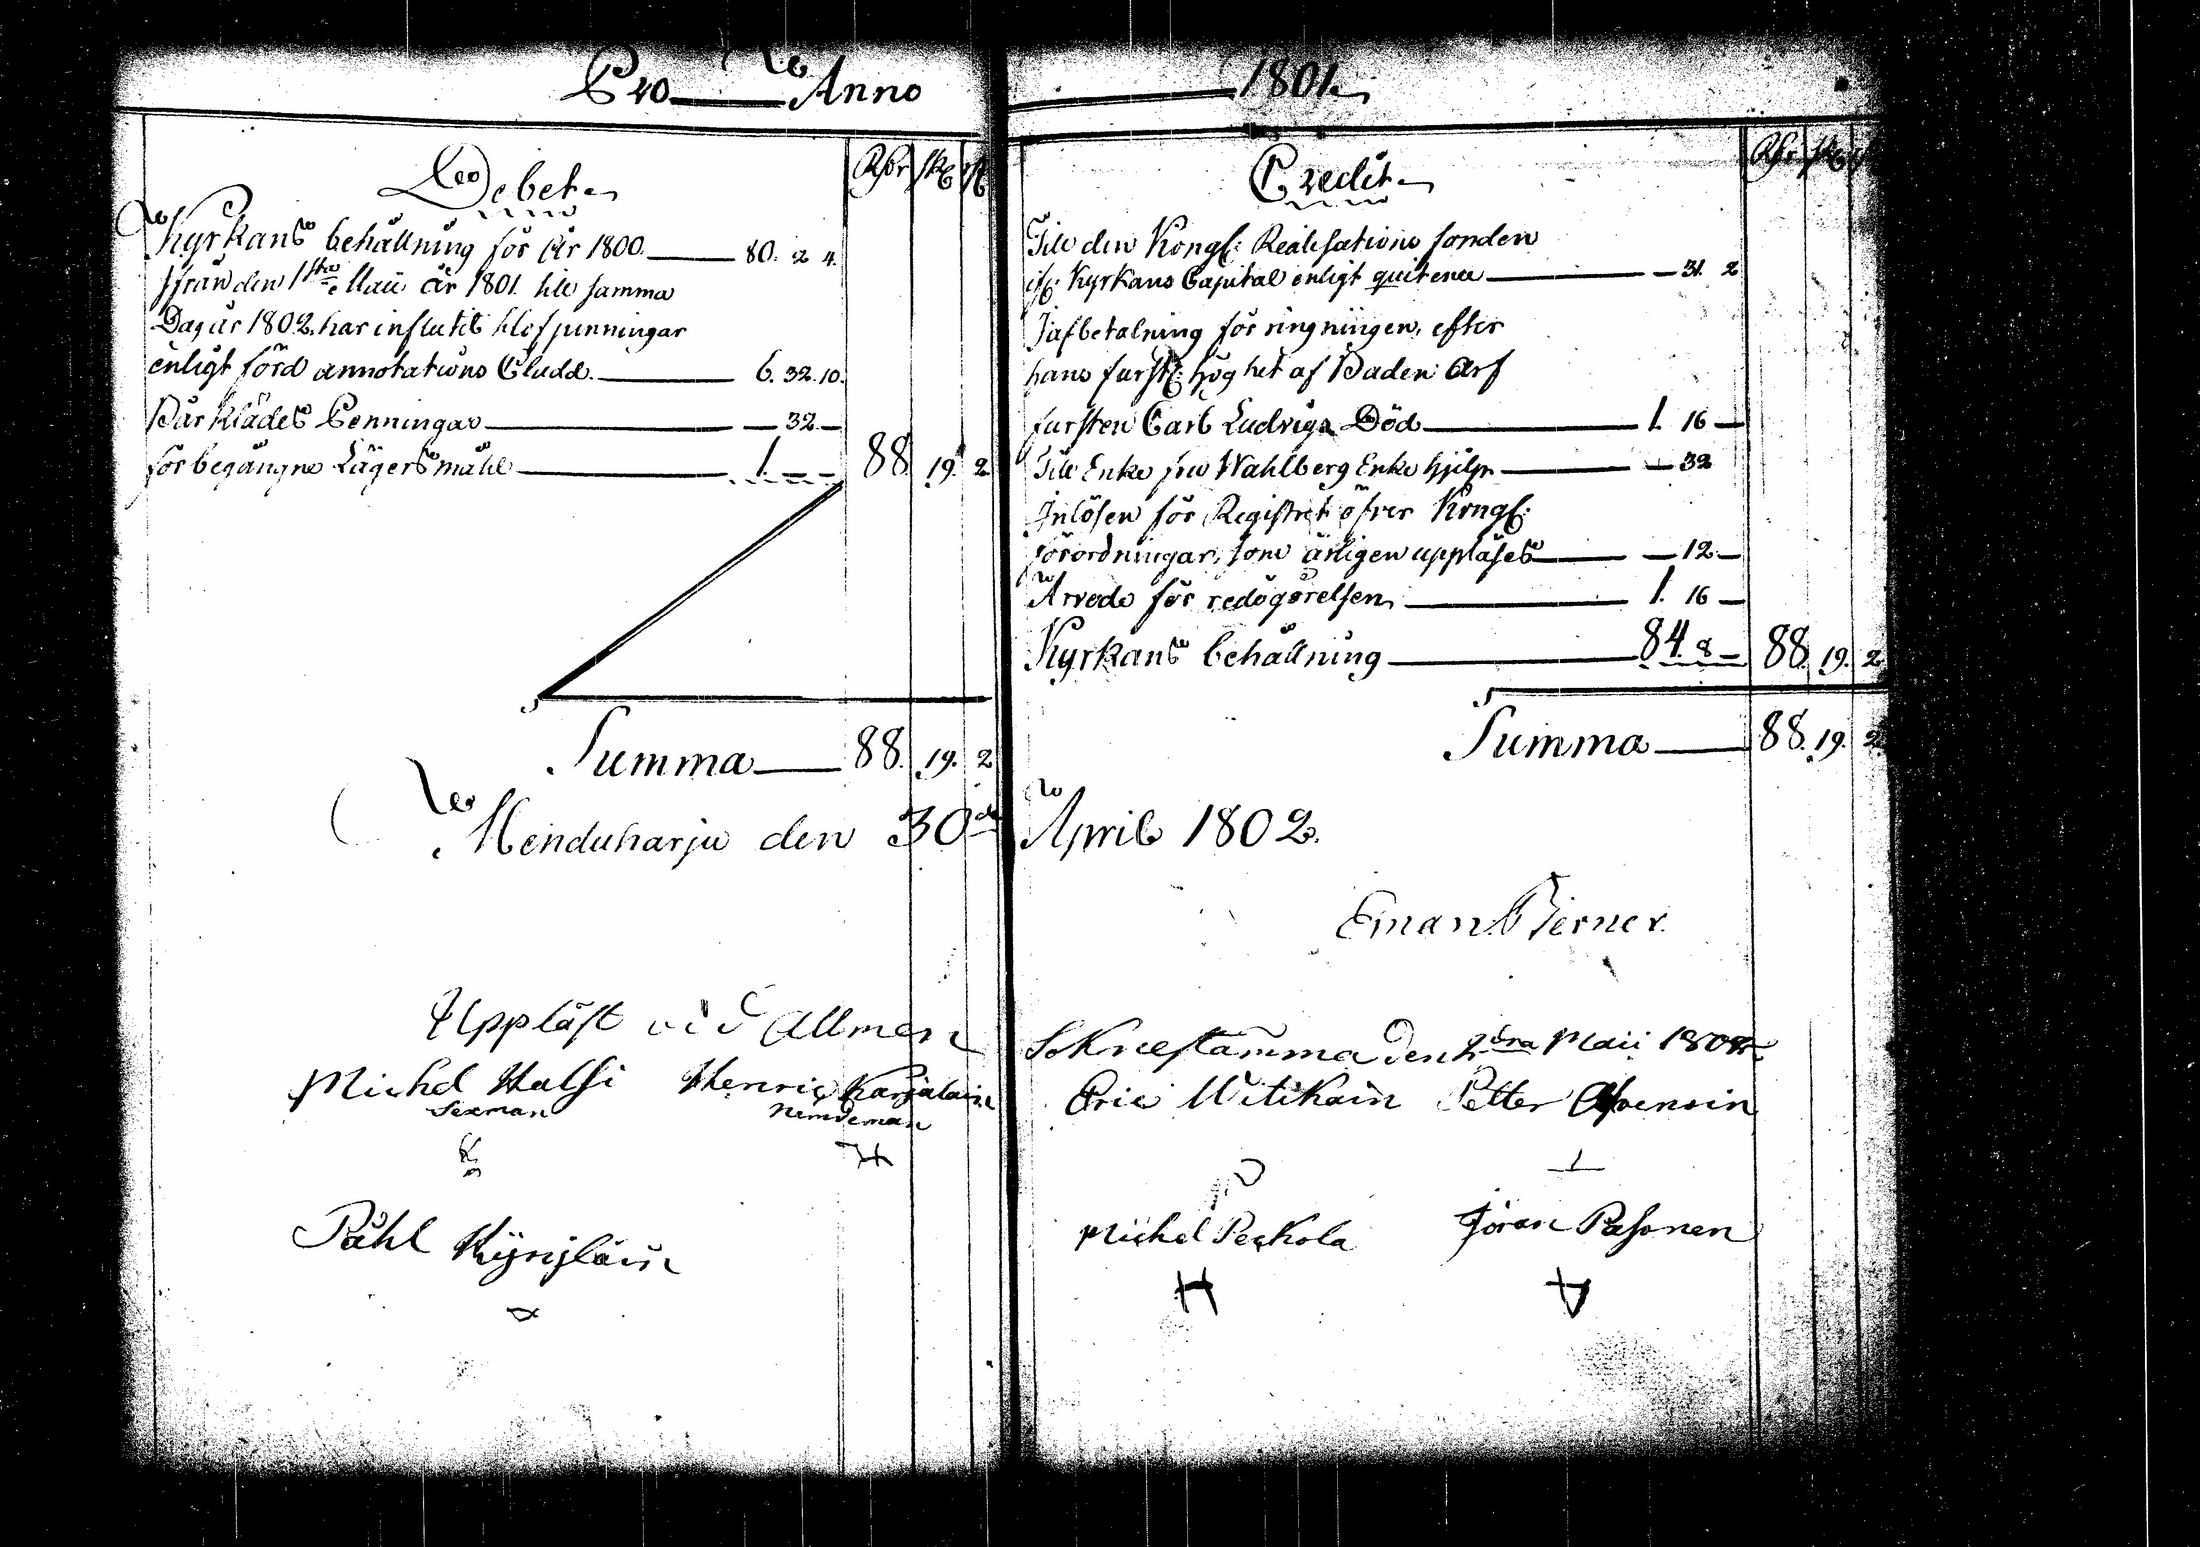 Pro Anno 1801.
Debet. Rdr sk
Kyrkans behållning för År 1800. 80. 2 4.
Ifrån den 1sta Maii år 1801 till samma
Dag år 1802. har influtit klofpenningar
enligt förd annotations Cludd. 6. 32. 10.
Bårklädes Penningar 32.
för begångne Lägersmåhl 1. 88. 19. 2
Summa 88. 19. 2
Credit. Rdr sk
Till den Kongl: Realisations fonden
Kyrkans Capital enligt quitence 31. 2
I afbetalning för ringningen, efter
hans furstl: höghet af Baden Arf
fursten Carl Ludvigs Död 1. 16
Till Enke fru Wahlberg Enke hjelp 32
Inlösen för Registret öfver Kongl:
förordningar, som årligen uppläses 12
Arvode för redogörelsen 1. 16
Kyrkans behållning 84. 8 88. 19. 2
Summa 88. 19. 2
Menduharju den 30de April 1802.
Eman Bjerner.
Uppläst vid Allmen Soknestämma den 2dra Maii 1802.
Michel Halsi Henric Karjalain Eric Witikain Petter
Sexman Nemdeman
Påhl Michel Peckola Jöran Pasonen